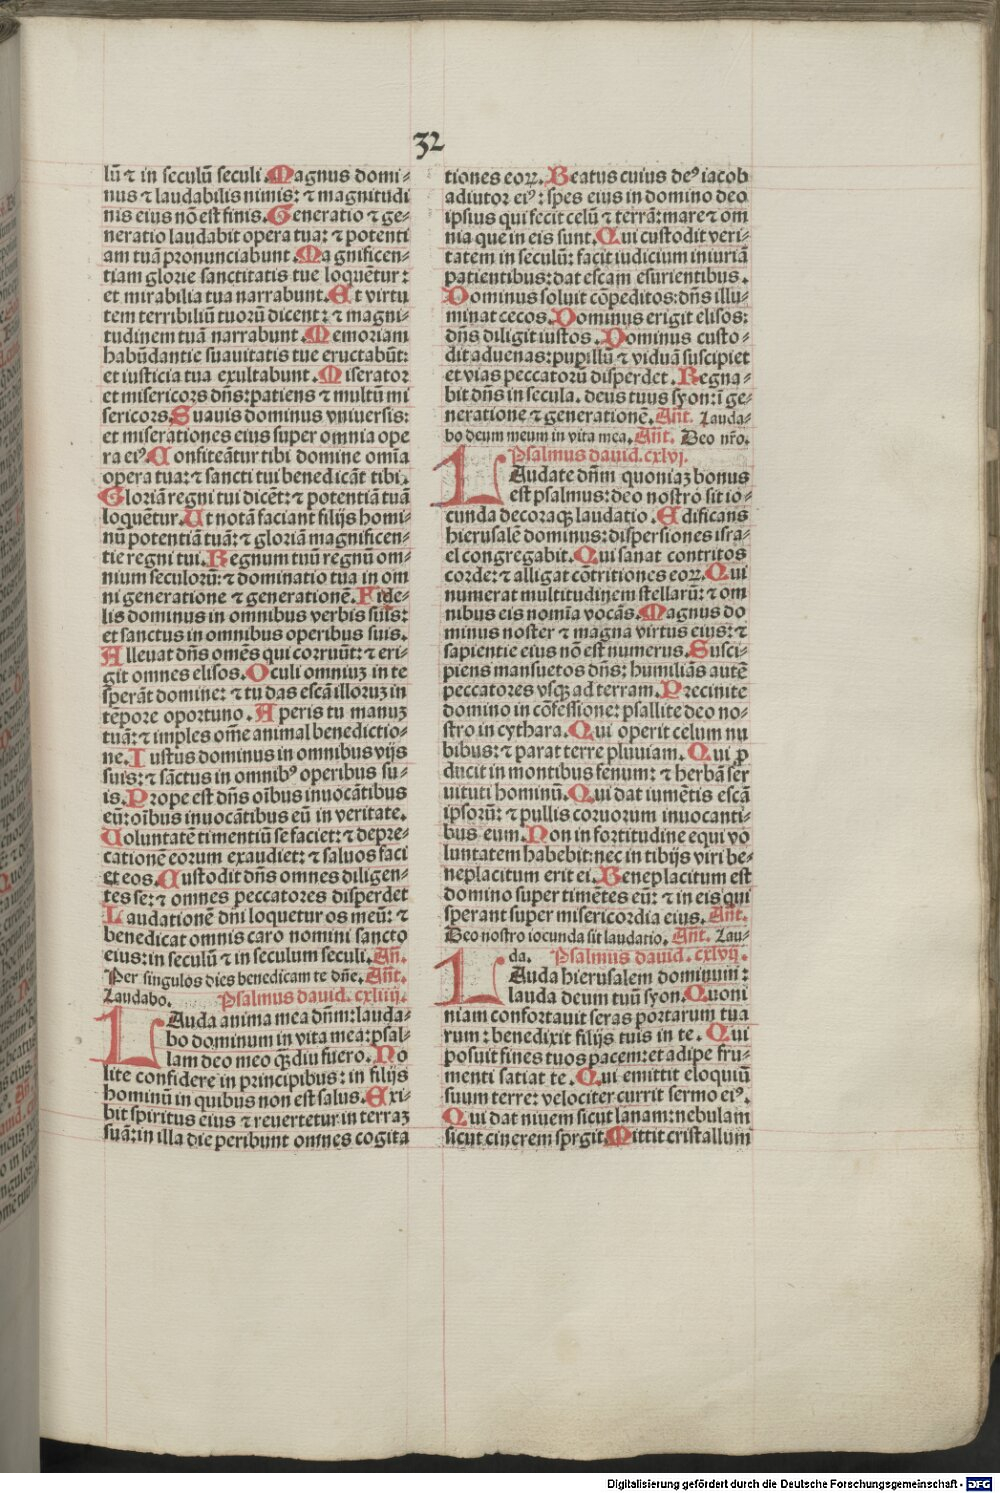 32
lũ ⁊ in seculũ seculi. Magnus domi-
nus ⁊ laudabilis nimis: ⁊ magnitudi
nis eius nõ est finis. Generatio ⁊ ge-
neratio laudabit opera tua: ⁊ potenti
am tuã pronunciabunt. Magnificen-
tiam glorie sanctitatis tue loquẽtur:
et mirabilia tua narrabunt. Et virtu
tem terribiliũ tuorũ dicent: ⁊ magni-
tudinem tuã narrabunt. Memoriam
habũdantie suauitatis tue eructabũt:
et iusticia tua exultabunt. Miserator
et misericors dñs: patiens ⁊ multũ mi
sericors. Suauis dominus vniuersis:
et miserationes eius super omnia ope
ra eiꝰ. Confiteãtur tibi domine omĩa
opera tua: ⁊ sancti tui benedicãt tibi.
Gloriã regni tui dicẽt: ⁊ potentiã tuã
loquẽtur. Ut notã faciant filijs homi-
nũ potentiã tuã: ⁊ gloriã magnificen-
tie regni tui. Regnum tuũ regnũ om-
nium seculorũ: ⁊ dominatio tua in om
ni generatione ⁊ generationẽ. Fide-
lis dominus in omnibus verbis suis:
et sanctus in omnibus operibus suis.
Alleuat dñs omẽs qui corruũt: ⁊ eri-
git omnes elisos. Oculi omniuꝫ in te
sperãt domine: ⁊ tu das escã illoruꝫ in
tẽpore oportuno. Aperis tu manuꝫ
tuã: ⁊ imples om̃e animal benedictio-
ne. Iustus dominus in omnibus vijs
suis: ⁊ sãctus in omnibꝰ operibus su-
is. Prope est dñs oĩbus inuocãtibus
eũ: oĩbus inuocãtibus eũ in veritate.
Uoluntatẽ timentiũ se faciet: ⁊ depre-
cationẽ eorum exaudiet: ⁊ saluos faci
et eos. Custodit dñs omnes diligen-
tes se: ⁊ omnes peccatores disperdet
Laudationẽ dñi loquetur os meũ: ⁊
benedicat omnis caro nomini sancto
eius: in seculũ ⁊ in seculum seculi. Añ.
Per singulos dies benedicam te dñe. Añt.
Laudabo. Psalmus dauid. cxliiij.
Lauda anima mea dñm: lauda-
bo dominum in vita mea: psal-
lam deo meo qȝdiu fuero. No
lite confidere in principibus: in filijs
hominũ in quibus non est salus. Exi-
bit spiritus eius ⁊ reuertetur in terraꝫ
suã: in illa die peribunt omnes cogita
tiones eoꝝ. Beatus cuius deꝰ iacob
adiutor eiꝰ: spes eius in domino deo
ipsius qui fecit celũ ⁊ terrã: mare ⁊ om
nia que in eis sunt. Qui custodit veri-
tatem in seculũ: facit iudicium iniuriã
patientibus: dat escam esurientibus.
Dominus soluit cõpeditos: dñs illu-
minat cecos. Dominus erigit elisos:
dñs diligit iustos. Dominus custo-
dit aduenas: pupillũ ⁊ viduã suscipiet
et vias peccatorũ disperdet. Regna-
bit dñs in secula. deus tuus syon: ĩ ge-
neratione ⁊ generationẽ. Añt. Lauda-
bo deum meum in vita mea. Añt. Deo nr̃o.
Psalmus dauid. cxlvj.
Laudate dñm quoniaꝫ bonus
est psalmus: deo nostro sit io-
cunda decoraqȝ laudatio. Edificans
hierusalẽ dominus: dispersiones isra-
el congregabit. Qui sanat contritos
corde: ⁊ alligat cõtritiones eoꝝ. Qui
numerat multitudinem stellarũ: ⁊ om
nibus eis nomĩa vocãs. Magnus do
minus noster ⁊ magna virtus eius: ⁊
sapientie eius nõ est numerus. Susci-
piens mansuetos dñs: humiliãs autẽ
peccatores vsqȝ ad terram. Precinite
domino in cõfessione: psallite deo no-
stro in cythara. Qui operit celum nu
bibus: ⁊ parat terre pluuiam. Qui ꝓ
ducit in montibus fenum: ⁊ herbã ser
uituti hominũ. Qui dat iumẽtis escã
ipsorũ: ⁊ pullis coruorum inuocanti-
bus eum. Non in fortitudine equi vo
luntatem habebit: nec in tibijs viri be-
neplacitum erit ei. Beneplacitum est
domino super timẽtes eũ: ⁊ in eis qui
sperant super misericordia eius. Añt.
Deo nostro iocunda sit laudatio. Añt. Lau-
da. Psalmus dauid. cxlvij.
Lauda hierusalem dominum:
lauda deum tuũ syon. Quoni
niam confortauit seras portarum tua
rum: benedixit filijs tuis in te. Qui
posuit fines tuos pacem: et adipe fru-
menti satiat te. Qui emittit eloquiũ
suum terre: velociter currit sermo eiꝰ.
Qui dat niuem sicut lanam: nebulam
sicut cinerem sprgit. Mittit cristallum
Digitalisierung gefördert durch die Deutsche Forschungsgemeinschaft - DFG